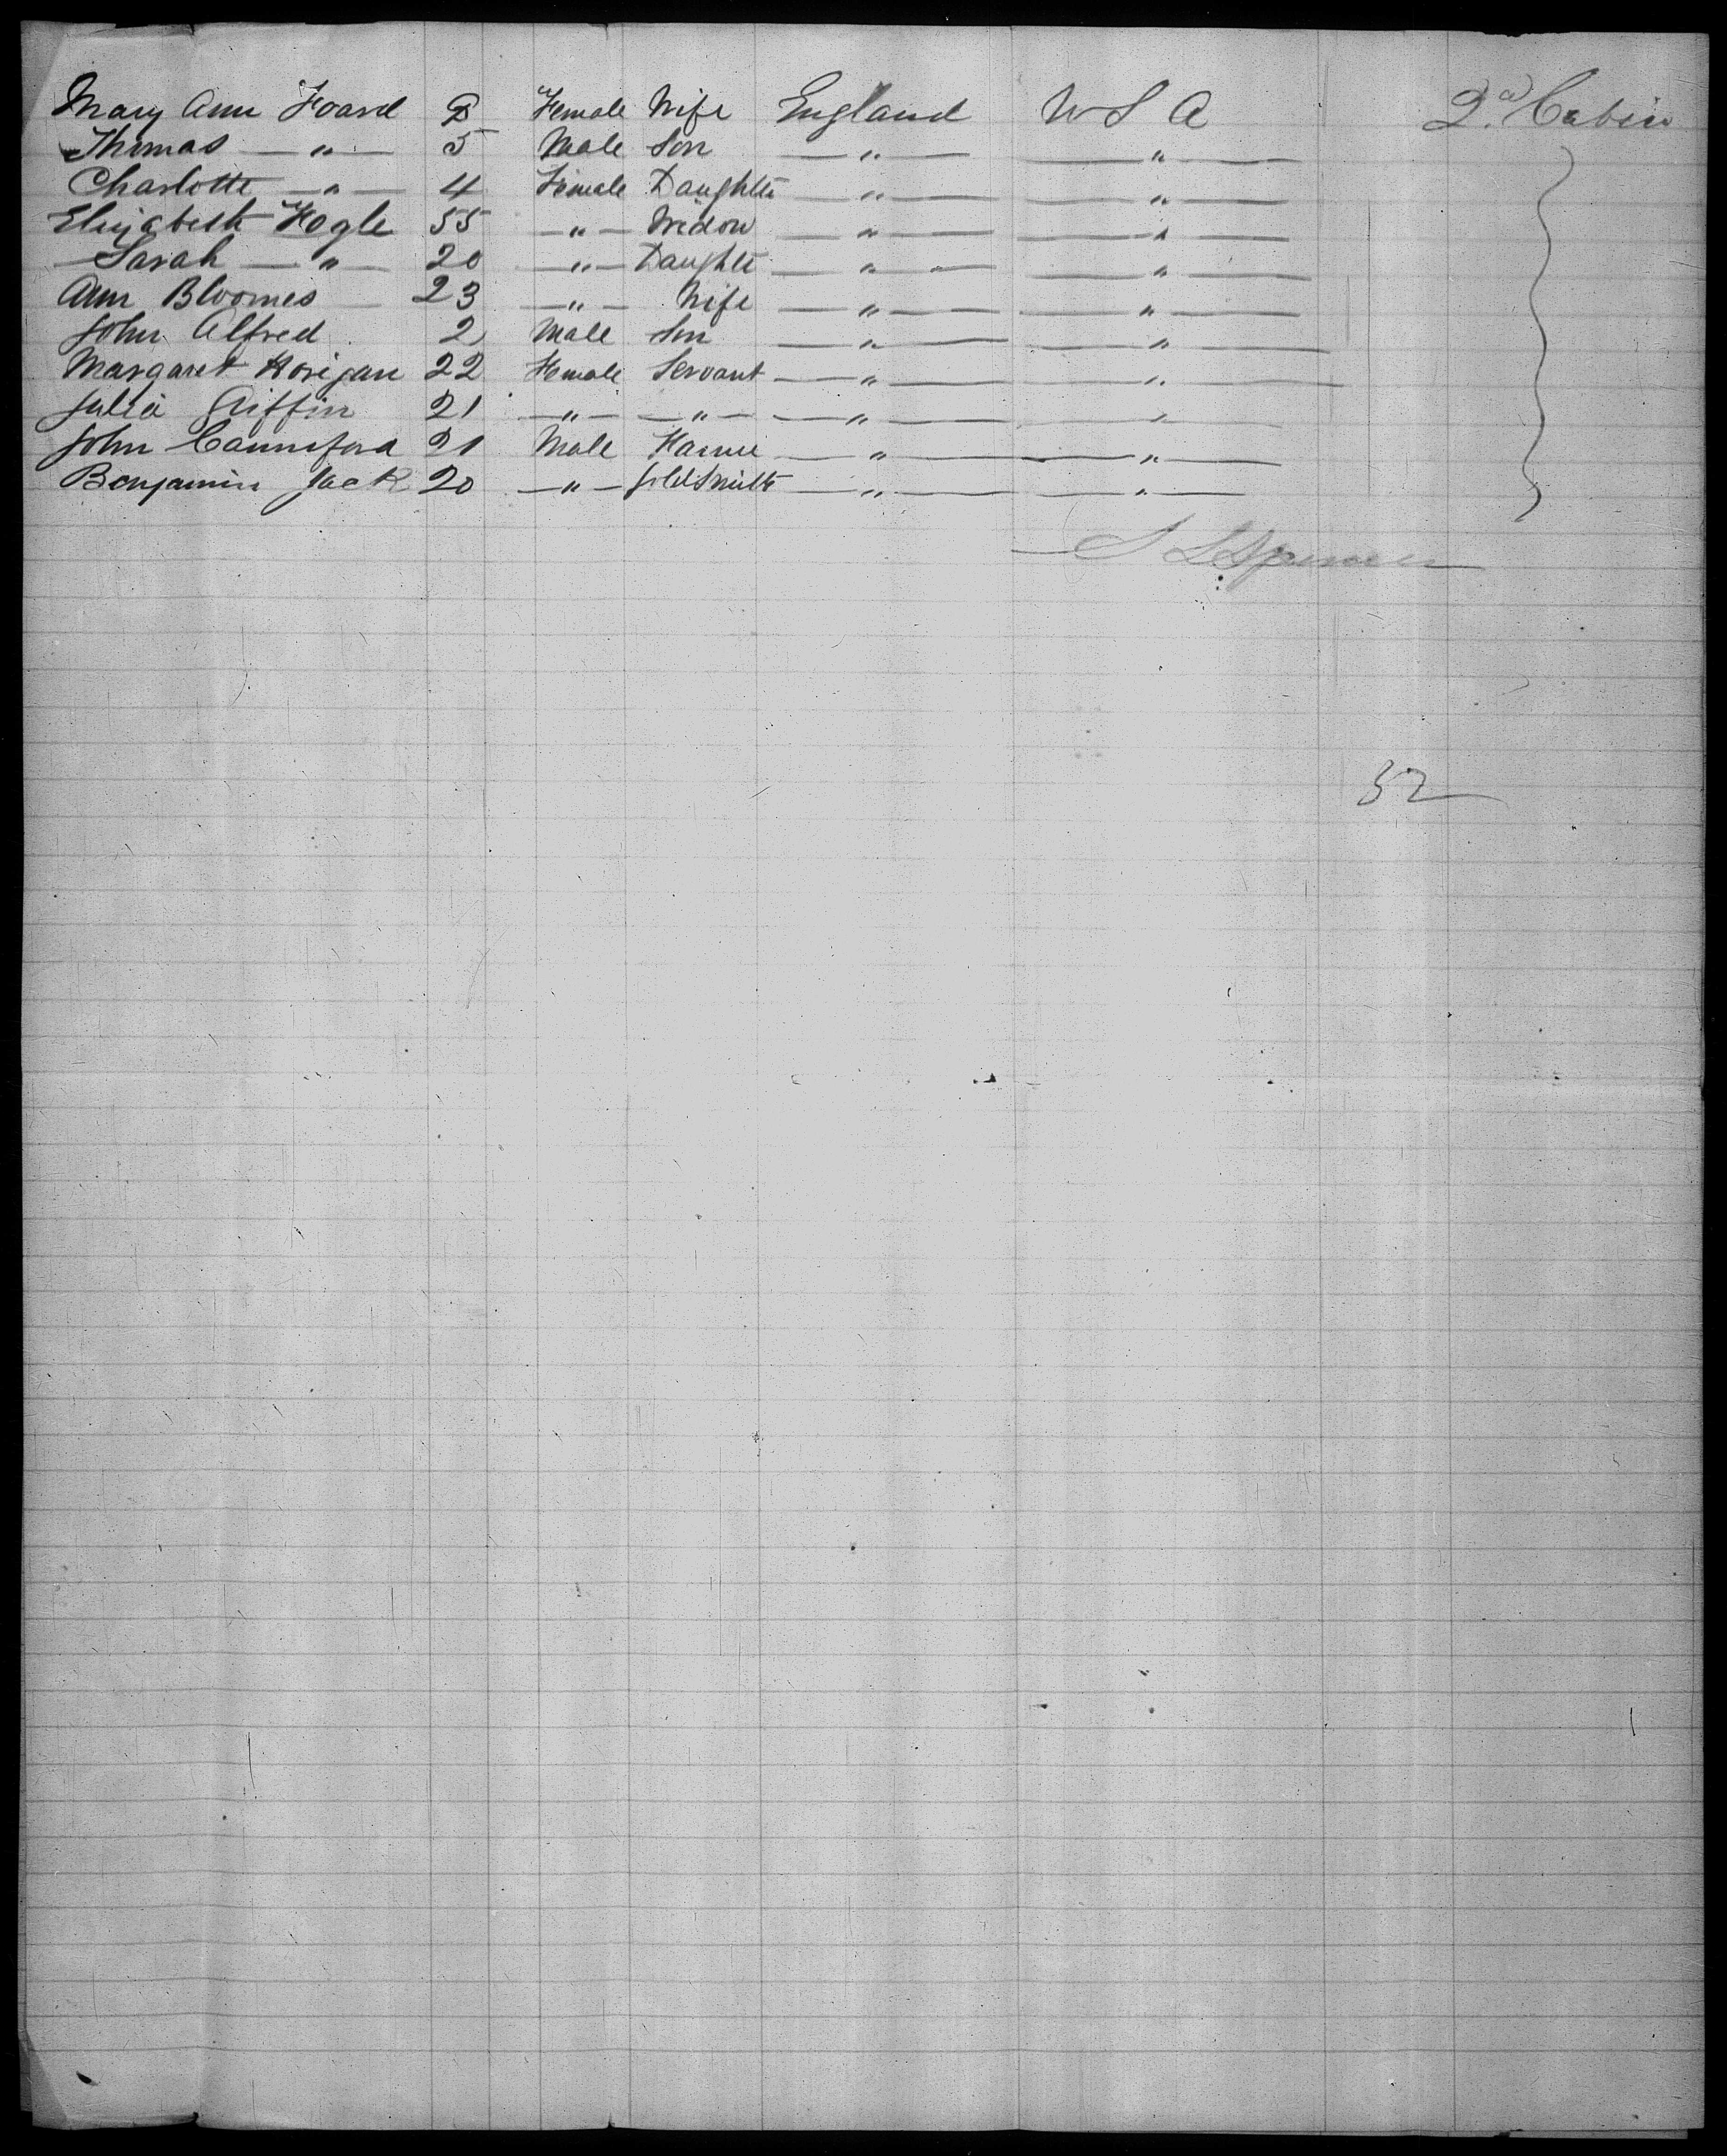 Mary Ann Foard Female Wife England U S A 2.d Cabin
Thomas — " — 5 Male Son — " — — " —
Charlotte — " — 4 Female Daughte — " — — " —
Elizabeth Hogle 55 — " — Widow — " — — " —
Sarah — " — 20 — " — Daughte — " — — " —
Ann Bloomes 23 — " — Wife — " — — " —
John Alfred 2 Male Son — " — — " —
Margaret Horigan 22 Female Servant — " — — " —
Julia Griffin 21 — " — — " — — " — — " —
John 21 Male — " — — " —
Benjamin Jack 20 — " — Goldsmith — " — — " —
32